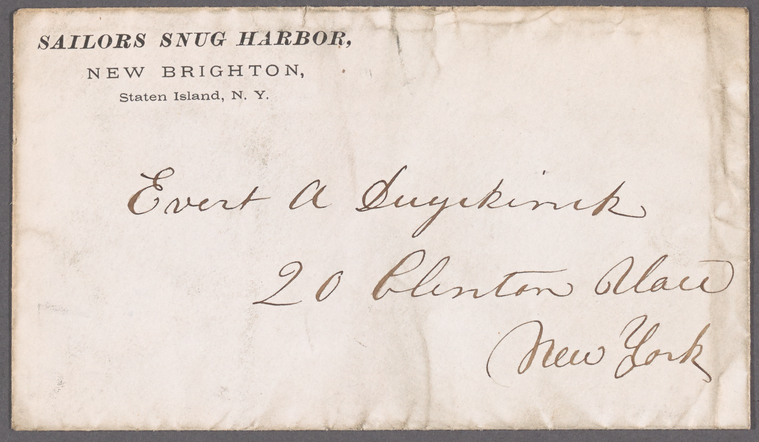 SAILORS SNUG HARBOR,
NEW BRIGHTON,
Staten Island, N. Y.
Evert A Duyckinck
20 Clinton Place
New York